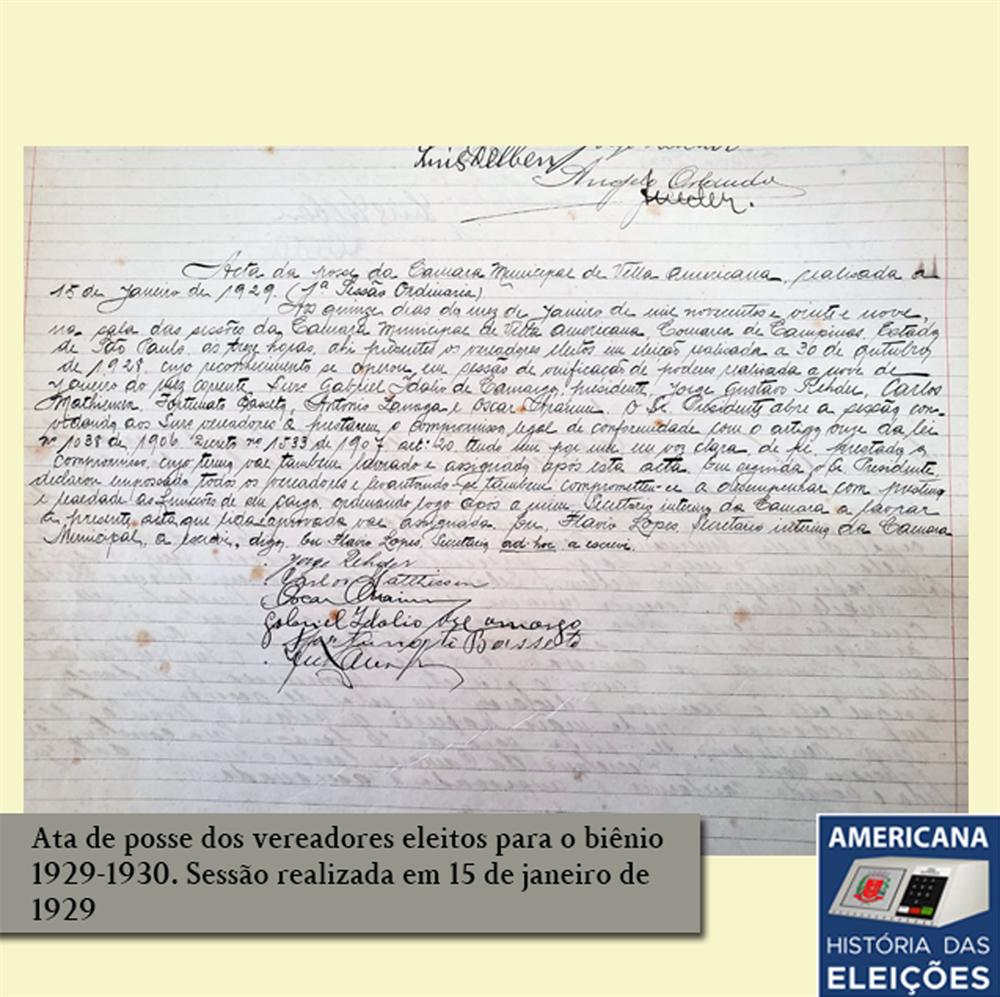 Luis Delben
Angelo Orlando
Acta da posse da Camara Municipal de Villa Americana, realisada a
15 de Janeiro de 1929. (1ª Sessão Ordinaria)
Aos quinze dias do mez de Janeiro de mil novecentos e vinte e nove,
na sala das sessões da Camara Municipal de Villa Americana Comarca de Campinas, Estado
de São Paulo, ás treze horas, ahi presentes os vereadores eleitos em eleição realisada a 30 de outubro
de 1928, cujo reconhecimento se operou em sessão de verificação de poderes realisada a nove de
Janeiro do mez corrente, Snrs. Gabriel Idalio de Camargo, presidente, Jorge Gustavo Rehder, Carlos
Mathiensen, Fortunato Basseto, Antonio Zanaga e Oscar Ararem. O Sr. Presidente abre a sessão con-
vidando aos Snrs vereadores a prestarem o compromisso legal de conformidade com o artigo onze da lei
nº 1038 de 1906, Decreto nº 1533 de 1907, art: 20 tudo em voz clara de pé, prestado o
compromisso, cujo termo vae tambem lavrado e assignado após esta acta. Em seguida o Sr. Presidente
declarou empossado todos os vereadores e levantando-se tambem comprometteu-se a desempenhar com
e lealdade as funcções de seu cargo, ordenando logo após a mim, Secretario interino da Camara a lavrar
a presente acta que lida e approvada vae assignada. Eu, Flavio Lopes, Secretario interino da Camara
Municipal, a escrevi, digo, Eu Flavio Lopes, Secretario ad-hoc a escrevi.
Jorge Rehder
Carlos Matthiesen
Oscar
Gabriel Idalio de Camargo
Basseto
Ata de posse dos vereadores eleitos para o biênio
1929-1930. Sessão realizada em 15 de janeiro de
1929
AMERICANA
HISTÓRIA DAS
ELEIÇÕES